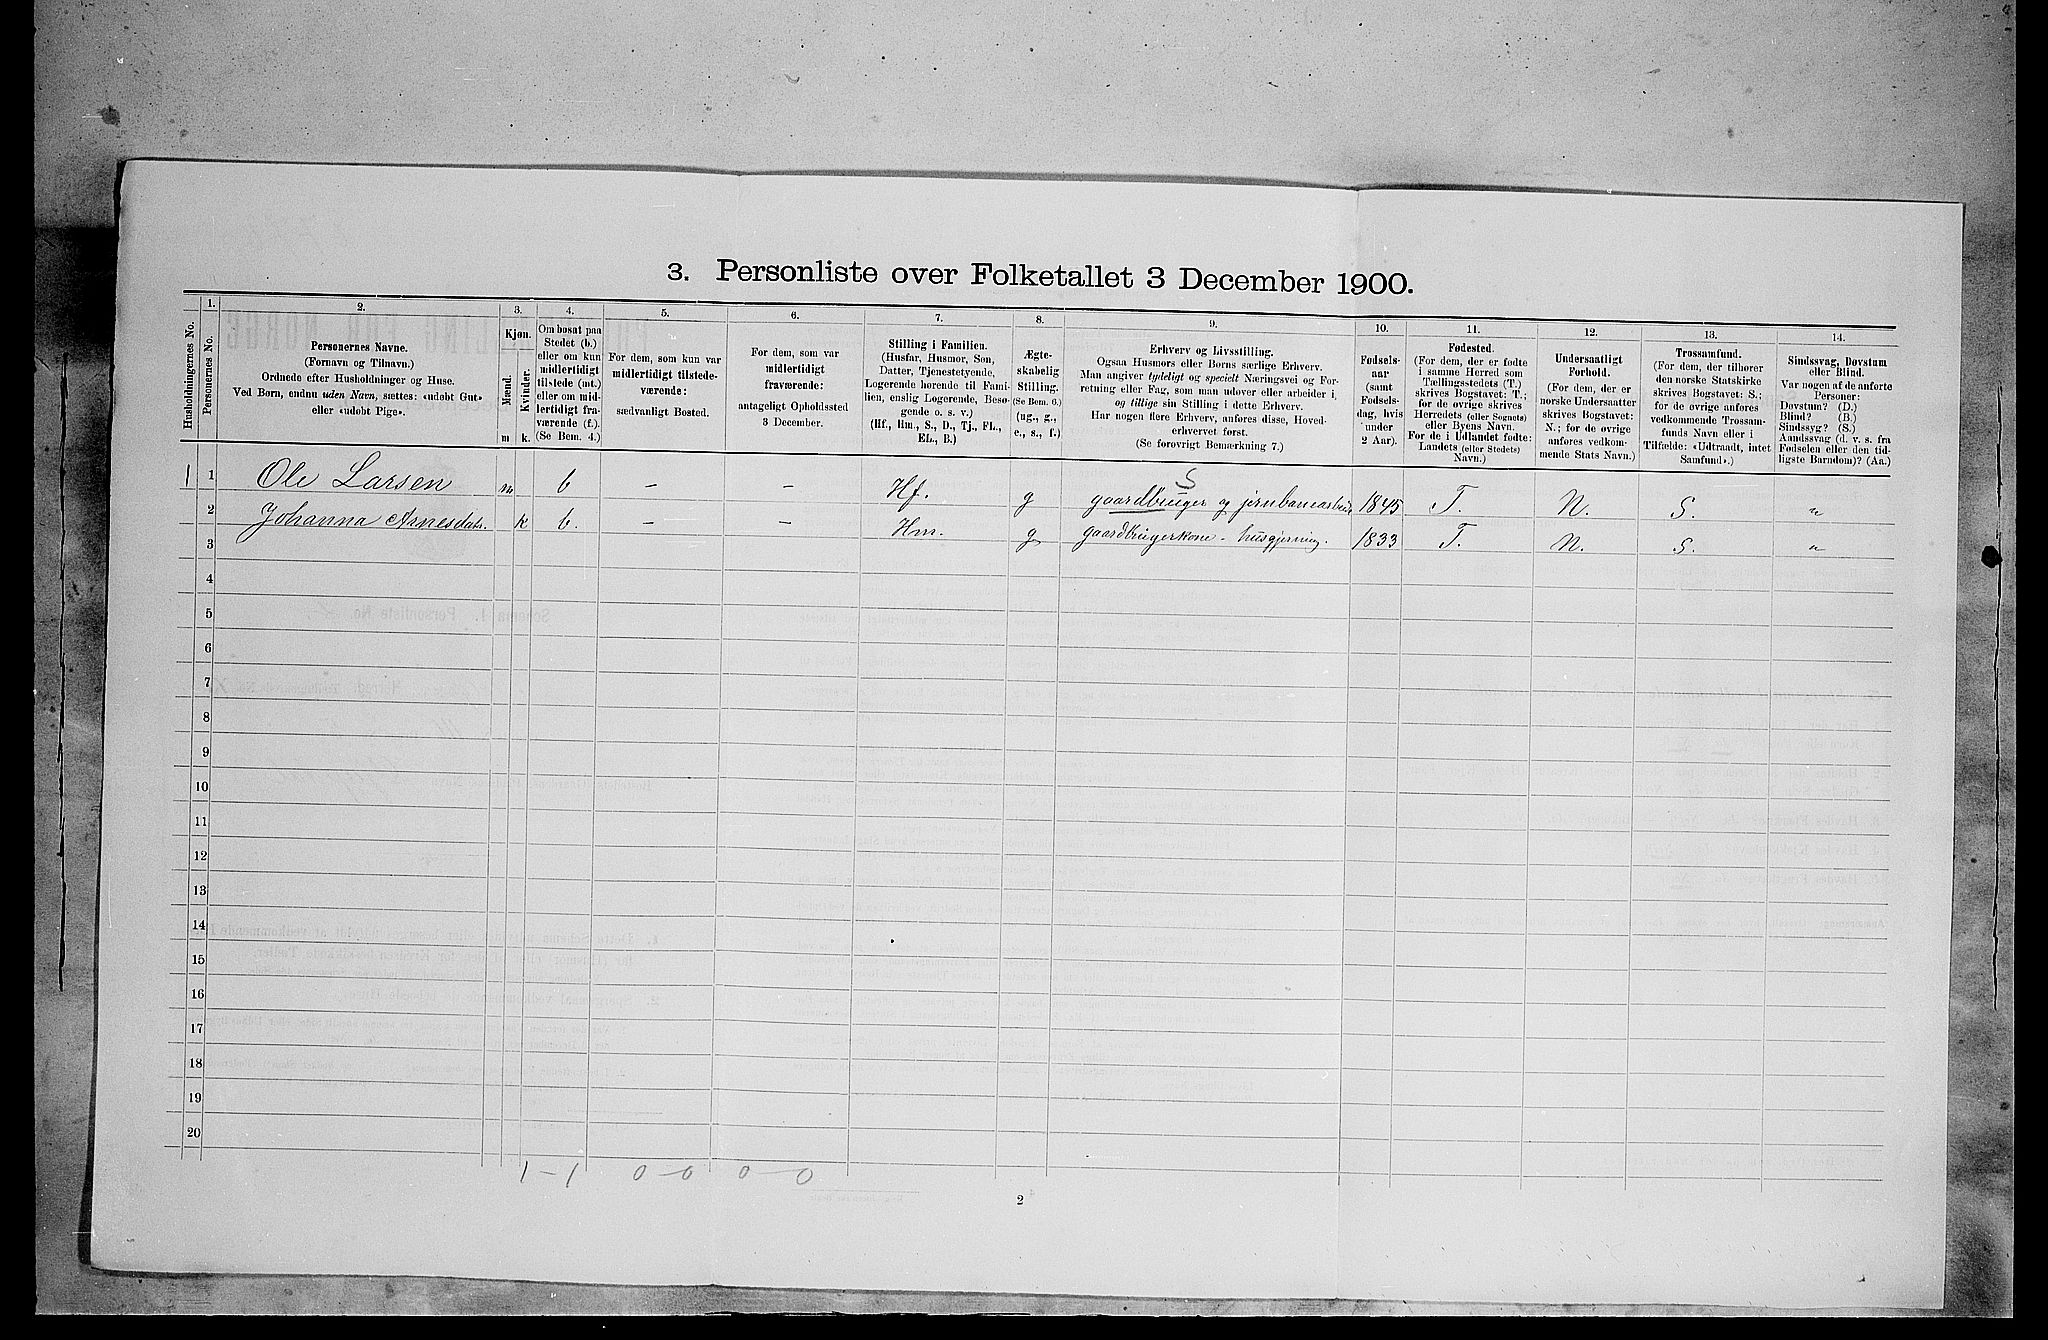 3. Personliste over Folketallet 3 December 1900.
Husholdningernes No.
1.
Personernes No.
2.
Personernes Navne.
(Fornavn og Tilnavn.)
Ordnede efter Husholdninger og Huse.
Ved Børn, endnu uden Navn, sættes: «udøbt Gut»
eller «udøbt Pige».
3.
Kjøn.
Mænd.
Kvinder.
m
k.
4.
Om bosat paa
Stedet (b.)
eller om kun
midlertidigt
tilstede (mt.)
eller om mid-
lertidigt fra-
værende (f.).
(Se Bem. 4.)
5.
For dem, som kun var
midlertidigt tilstede-
værende:
sædvanligt Bosted.
6.
For dem, som var
midlertidigt
fraværende:
antageligt Opholdssted
3 December.
7.
Stilling i Familien.
(Husfar, Husmor, Søn,
Datter, Tjenestetyende,
Logerende hørende til Fami-
lien, enslig Logerende, Besø-
gende o. s. v.)
(Hf., Hm., S., D., Tj., FL.,
EL., B.)
8.
Ægte-
skabelig
Stilling.
(Se Bem. 6.)
(ug., g.,
e., s., f.)
9.
Erhverv og Livsstilling.
Ogsaa Husmors eller Børns særlige Erhverv.
Man angiver tydeligt og specielt Næringsvei og For-
retning eller Fag, som man udøver eller arbeider i,
og tillige sin Stilling i dette Erhverv.
Har nogen flere Erhverv, anføres disse, Hoved-
erhvervet først.
(Se forøvrigt Bemærkning 7.)
10.
Fødsels-
aar
(samt
Fødsels-
dag, hvis
under
2 Aar).
11.
Fødested.
(For dem, der er fødte
i samme Herred som
Tællingsstedets (T.)
skrives Bogstavet: T.;
for de øvrige skrives
Herredets (eller Sognets)
eller Byens Navn.
For de i Udlandet fødte:
Landets (eller Stedets)
Navn.)
12.
Undersaatligt
Forhold.
(For dem, der er
norske Undersaatter
skrives Bogstavet:
N.; for de øvrige
anføres vedkom-
mende Stats Navn.)
13.
Trossamfund.
(For dem, der tilhører
den norske Statskirke
skrives Bogstavet: S.;
for de øvrige anføres
vedkommende Trossam-
funds Navn eller i
Tilfælde: «Udtraadt, intet
Samfund».)
14.
Sindssvag, Døvstum
eller Blind.
Var nogen af de anførte
Personer:
Døvstum? (D.)
Blind? (B.)
Sindssyg? (S.)
Aandssvag (d. v. s. fra
Fødselen eller den tid-
ligste Barndom)? (Aa.)
S
1 1 Ole Larsen m b - - Hf. g gaardbruger og jernbanearbeid 1845 T. N. S. "
2 Johanna Arnesdatr. k b. - - Hm. g gaardbrugerkone - husgjerning. 1833 T. N. S. "
3
4
5
6
7
8
9
10
11
12
13
14
15
16
17
18
19
20
1-1 0-0 0-0
2